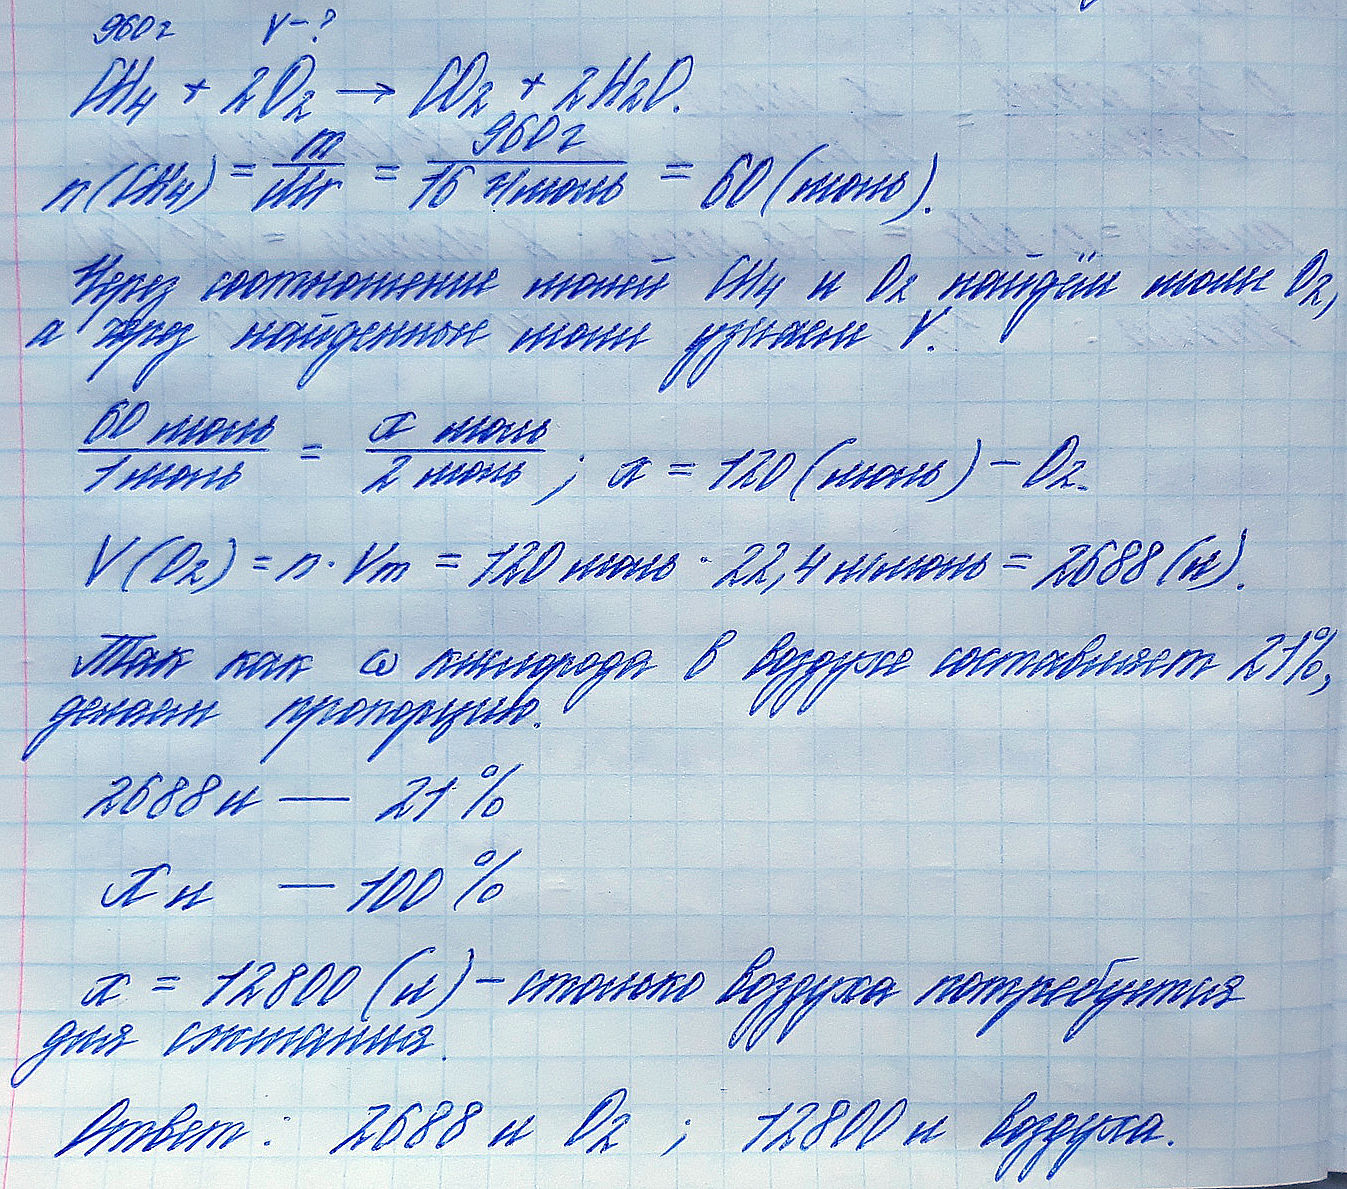 960 г V - ?
CH₄ + 2O₂ → CO₂ + 2H₂O.
n(CH₄) = m/Mr = 960 г/16 г/моль = 60 (моль).
Через соотношение молей CH₄ и O₂ найдём моли O₂,
а через найденные моли узнаем V.
60 моль/1 моль = x моль/2 моль ; x = 120 (моль) – O₂.
V(O₂) = n · Vm = 120 моль · 22,4 л/моль = 2688 (л).
Так как ω кислорода в воздухе составляет 21%,
делаем пропорцию.
2688 л — 21%
x л — 100%
x = 12800 (л) – столько воздуха потребуется
для сжигания.
Ответ : 2688 л O₂ ; 12800 л воздуха.